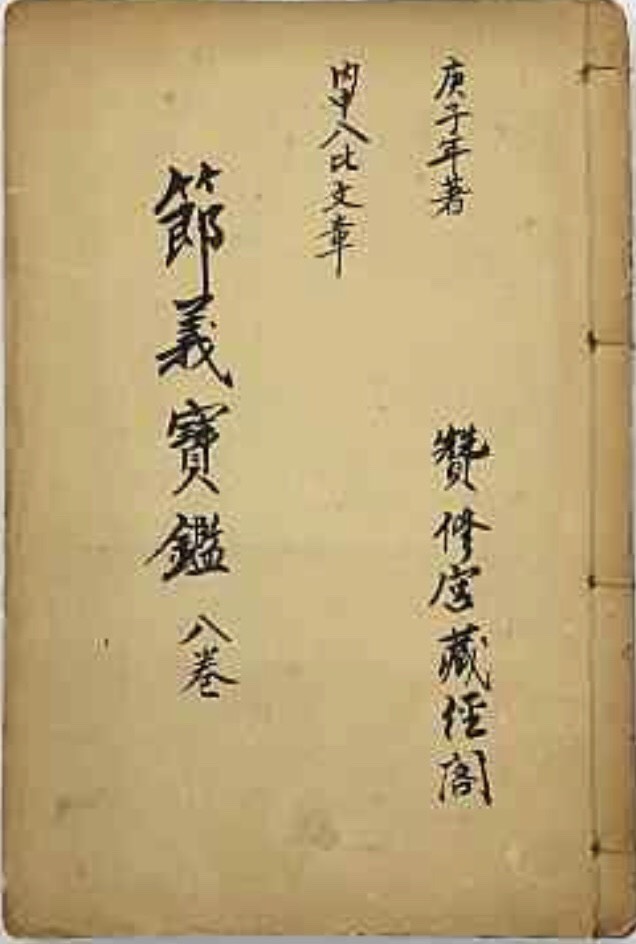 庚子年著
贊修宮藏經閣
內中八比文章
節義寶鑑 八卷